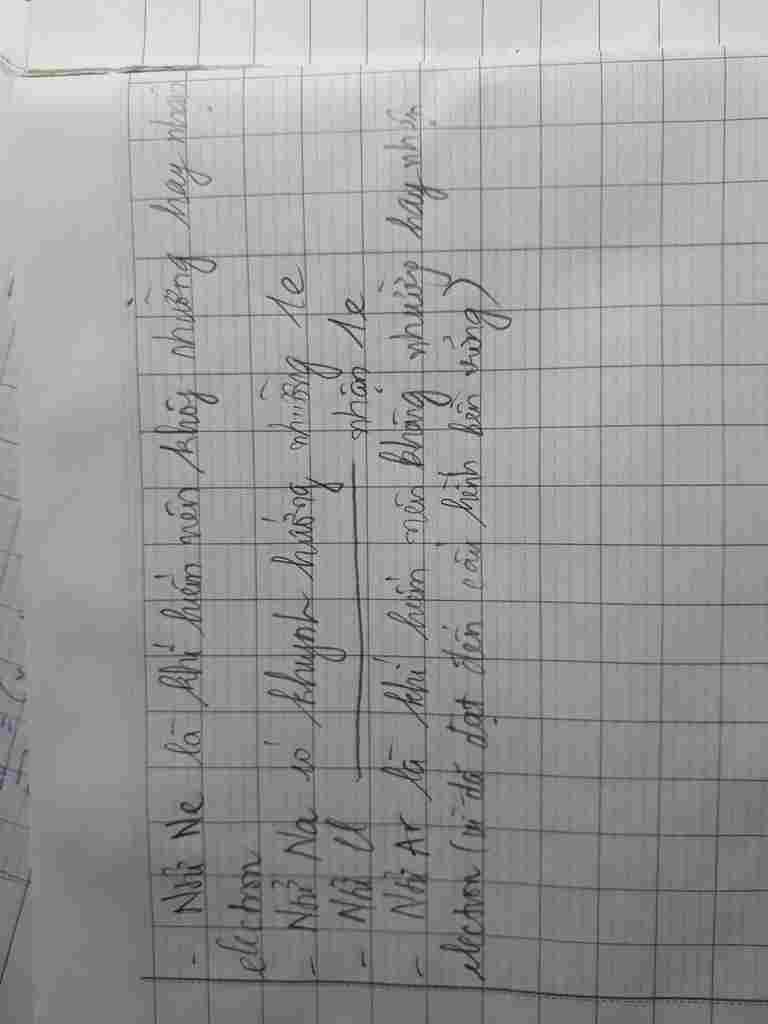 - Ntử Ne là khí hiếm nên không nhường hay nhận
electron
- Ntử Na có khuynh hướng nhường 1e
- Ntử Cl ——— nhận 1e
- Ntử Ar là khí hiếm nên không nhường hay nhận
electron (vì đã đạt đến cấu hình bền vững)